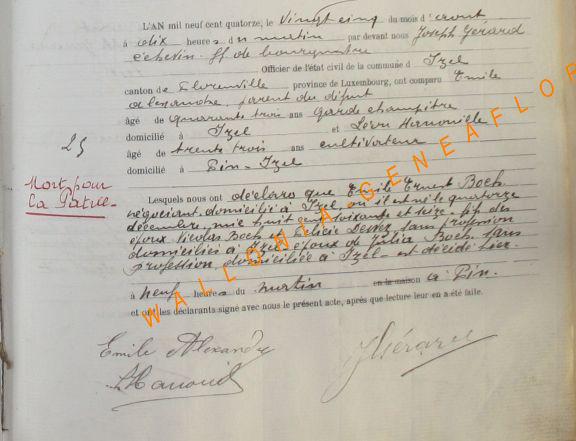 L'AN mil neuf cent quatorze, le vingt cinq du mois d'août
à dix heures du matin par devant nous Joseph Gerard
échevin ff de bourgmestre
Officier de l'état civil de la commune d Izel
canton de Florenville province de Luxembourg, ont comparu Emile
Alexandre, parent du défunt
âgé de quarante trois ans Garde champêtre
domicilié à Izel et Léon Hanouille
âgé de trente trois ans cultivateur
domicilié à Pin-Izel
25
Mort pour
la Patrie
Lesquels nous ont déclaré que Emile Ernest Boeb
négociant, domicilié à Izel, où il est né le quatorze
décembre mil huit cent soixante et seize, fils des
époux Nicolas Boeb et Félicie sans profession
domiciliés à Izel époux de Julia Boeb sans
profession, domiciliée à Izel est décédé hier
à neuf heures du matin en la maison à Pin.
et ont les déclarants signé avec nous le présent acte, après que lecture leur en a été faite.
Emile Alexandre
JGérard
WALLONIA GENEAFLOR